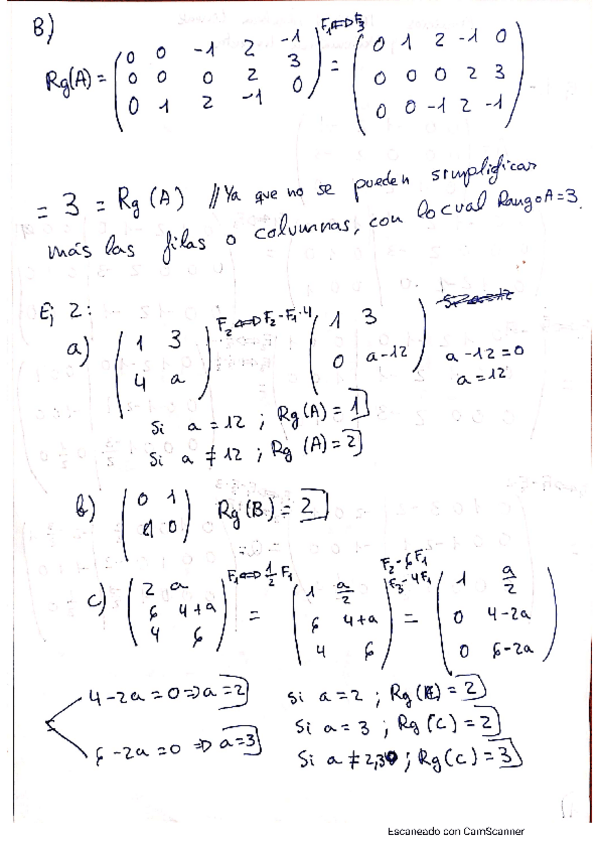 B)
Rg(A) = ( 0 0 -1 2 -1 ) F₁⇔F₃ ( 0 1 2 -1 0 )
( 0 0 0 2 3 ) = ( 0 0 0 2 3 )
( 0 1 2 -1 0 ) ( 0 0 -1 2 -1 )
= 3 = Rg(A) // Ya que no se pueden simplificar
más las filas o columnas, con lo cual RangoA=3.
Ej 2:
a) ( 1 3 ) F₂⇔F₂-F₁·4 ( 1 3 )
( 4 a ) ( 0 a-12 ) a-12=0
a=12
Si a = 12 ; Rg(A) = 1
Si a ≠ 12 ; Rg(A) = 2
b) ( 0 1 ) Rg(B) = 2
( 1 0 )
c) ( 2 a ) F₁⇔½F₁ ( 1 a/2 ) F₂-6F₁ F₃-4F₁ ( 1 a/2 )
( 6 4+a ) = ( 6 4+a ) = ( 0 4-2a )
( 4 6 ) ( 4 6 ) ( 0 6-2a )
4-2a=0 ⇒ a=2 Si a=2 ; Rg(C) = 2
6-2a=0 ⇒ a=3 Si a=3 ; Rg(C) = 2
Si a≠2,3 ; Rg(C) = 3
Escaneado con CamScanner